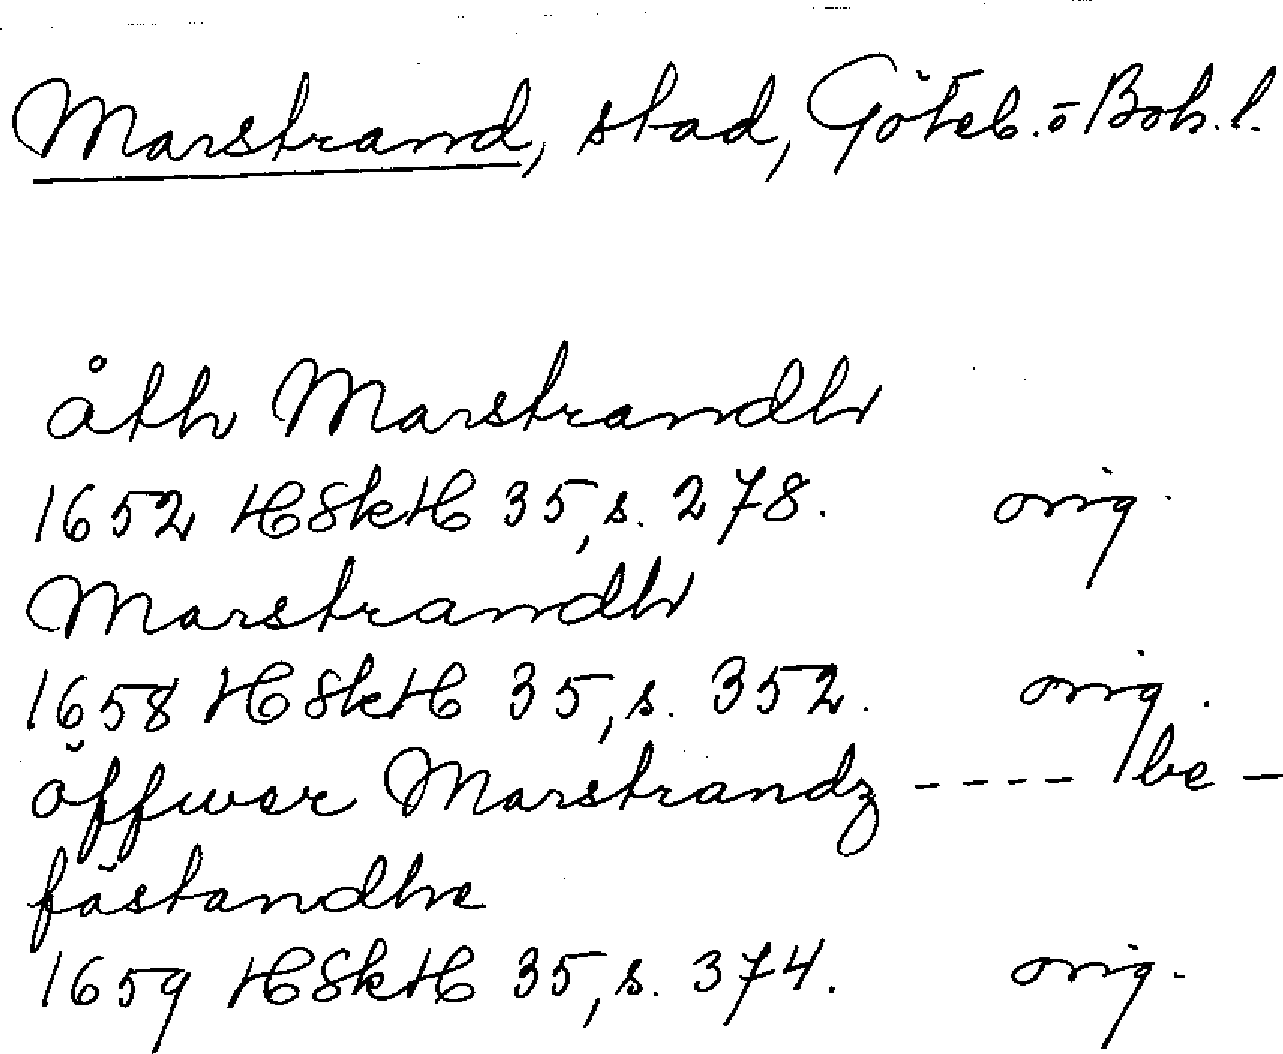 Marstrand, stad, Göteb. o Boh. l.
åth Marstrandh
1652 HSkH 35, s. 278. orig.
Marstrandh
1658 HSkH 35, s. 352. orig.
öffwer Marstrandz ---- be-
fästandhe
1659 HSkH 35, s. 374. orig.